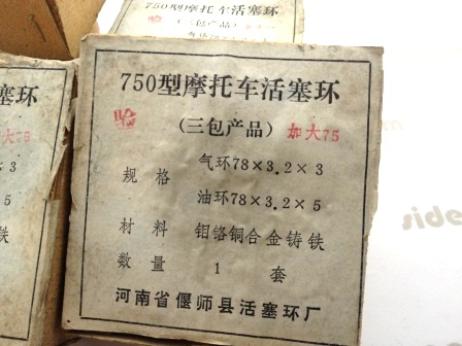 750型摩托车活塞环
750型摩托车活塞环
验
(三包产品) 加大75
规格 气环78×3.2×3
油环78×3.2×5
材料 钼铬铜合金铸铁
数量 1 套
河南省偃师县活塞环厂
塞环
大75
×3
×5
铁
side